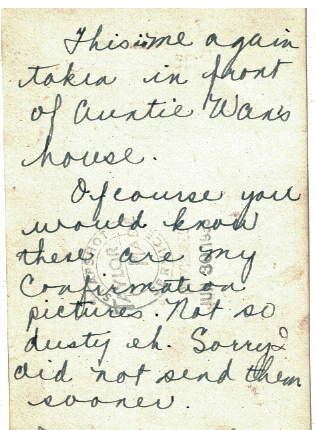 This is me again
taken in front
of Auntie Wan's
house.
Ofcourse you
would know
these are my
Confirmation
pictures. Not so
dusty eh. Sorry I
did not send them
sooner.
JUN 30